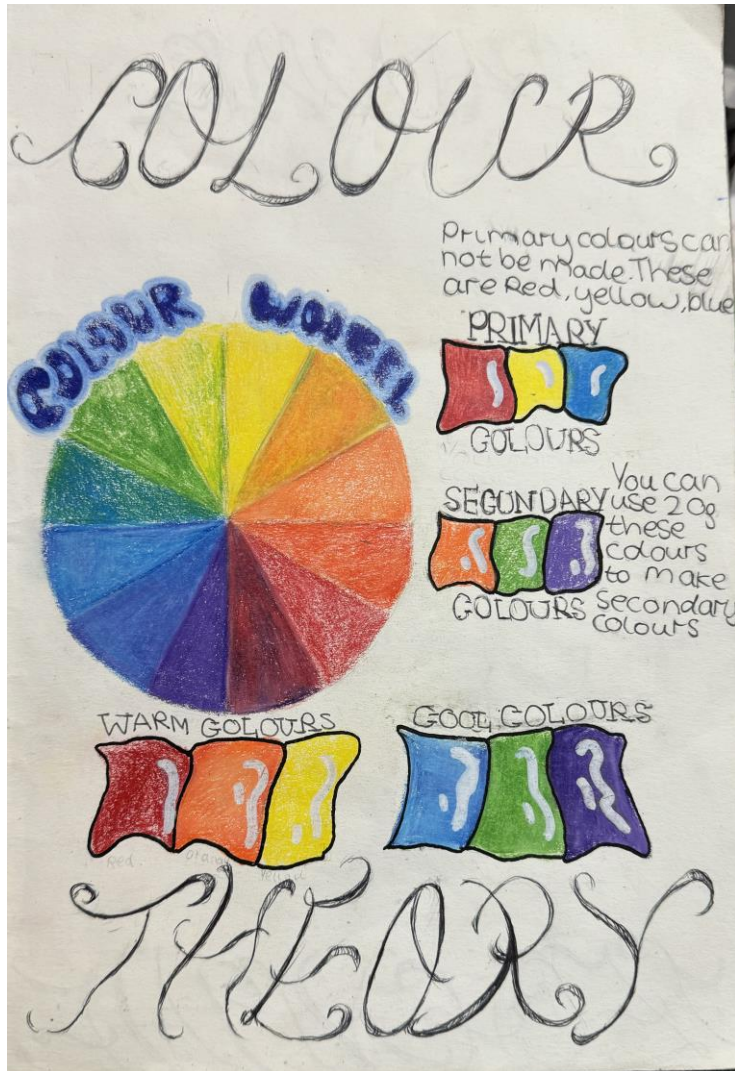 COLOUR
Primiary colours can
not be made. These
are Red, yellow, blue
COLOUR WHEEL
PRIMARY
COLOURS
SECONDARY
COLOURS
You can
use 2 of
these
colours
to make
secondary
colours
WARM COLOURS
COOL COLOURS
Red
Orange
Yellow
THEORY